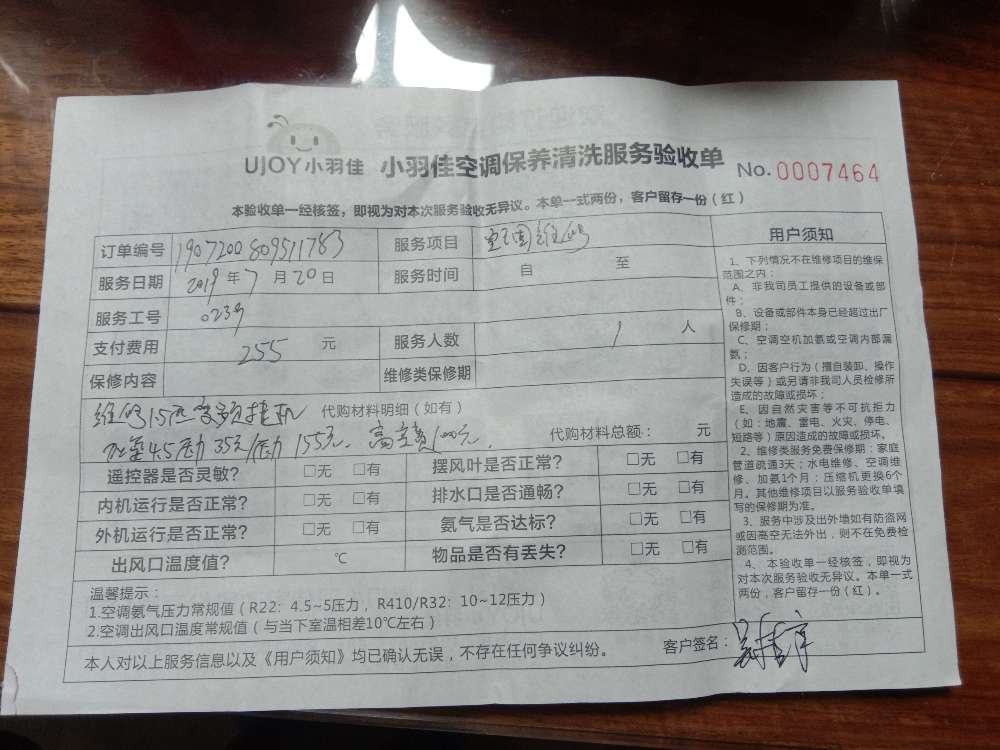 UJOY小羽佳 小羽佳空调保养清洗服务验收单 No.0007464
本验收单一经核签，即视为对本次服务验收无异议。本单一式两份，客户留存一份（红）
订单编号 190720080951783 服务项目 空调维修
服务日期 2019年7月20日 服务时间 自 至
服务工号 0239
支付费用 255 元 服务人数 1 人
保修内容 维修类保修期
维修1.5匹变频挂机 代购材料明细（如有）
加至4.5压力 35元/压力 155元，高空费100元， 代购材料总额： 元
遥控器是否灵敏？ □无 □有 摆风叶是否正常？ □无 □有
内机运行是否正常？ □无 □有 排水口是否通畅？ □无 □有
外机运行是否正常？ □无 □有 氨气是否达标？ □无 □有
出风口温度值？ ℃ 物品是否有丢失？ □无 □有
温馨提示：
1.空调氨气压力常规值（R22：4.5~5压力，R410/R32：10~12压力）
2.空调出风口温度常规值（与当下室温相差10℃左右）
本人对以上服务信息以及《用户须知》均已确认无误，不存在任何争议纠纷。 客户签名：
用户须知
1、下列情况不在维修项目的维保
范围之内：
A、非我司员工提供的设备或部
件；
B、设备或部件本身已经超过出厂
保修期；
C、空调空机加氨或空调内部漏
氨；
D、因客户行为（擅自装卸、操作
失误等）或另请非我司人员检修所
造成的故障或损坏；
E、因自然灾害等不可抗拒力
（如：地震、雷电、火灾、停电、
短路等）原因造成的故障或损坏。
2、维修类服务免费保修期：家庭
管道疏通3天；水电维修、空调维
修、加氨1个月；压缩机更换6个
月。其他维修项目以服务验收单填
写的保修期为准。
3、服务中涉及出外墙如有防盗网
或因高空无法外出，则不在免费检
测范围。
4、本验收单一经核签，即视为
对本次服务验收无异议。本单一式
两份，客户留存一份（红）。